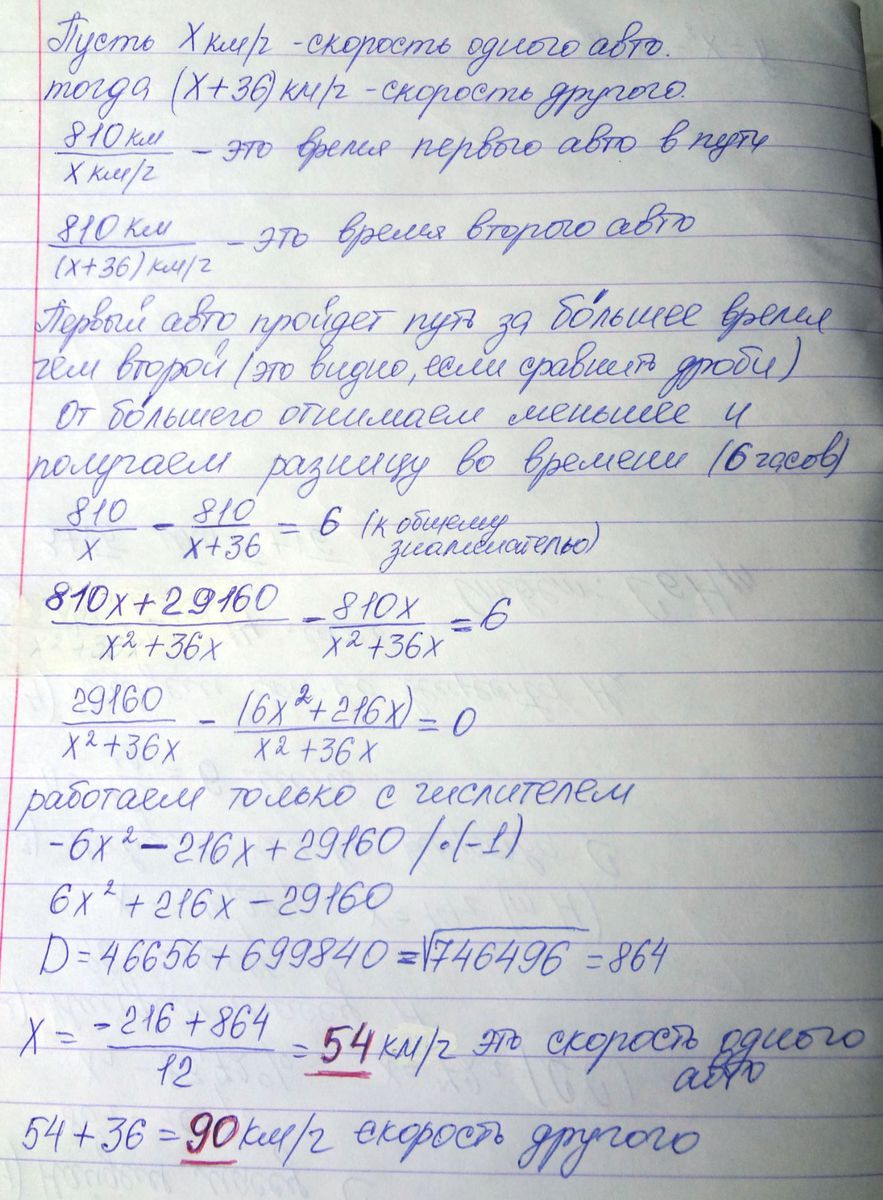 Пусть X км/г - скорость одного авто.
тогда (X+36) км/г - скорость другого.
810 км / X км/г - это время первого авто в пути
810 км / (x+36) км/г - это время второго авто
Первый авто пройдет путь за бо́льшее время
чем второй (это видно, если сравнить дроби)
От бо́льшего отнимаем меньшее и
получаем разницу во времени (6 часов)
810/x - 810/x+36 = 6 (к общему знаменателью)
810x+29160 / x²+36x - 810x / x²+36x = 6
29160 / x²+36x - (6x²+216x) / x²+36x = 0
работаем только с числителем
-6x² - 216x + 29160 /·(-1)
6x² + 216x - 29160
D = 46656 + 699840 = √746496 = 864
X = -216 + 864 / 12 = 54 км/г это скорость одного авто
54 + 36 = 90 км/г скорость другого